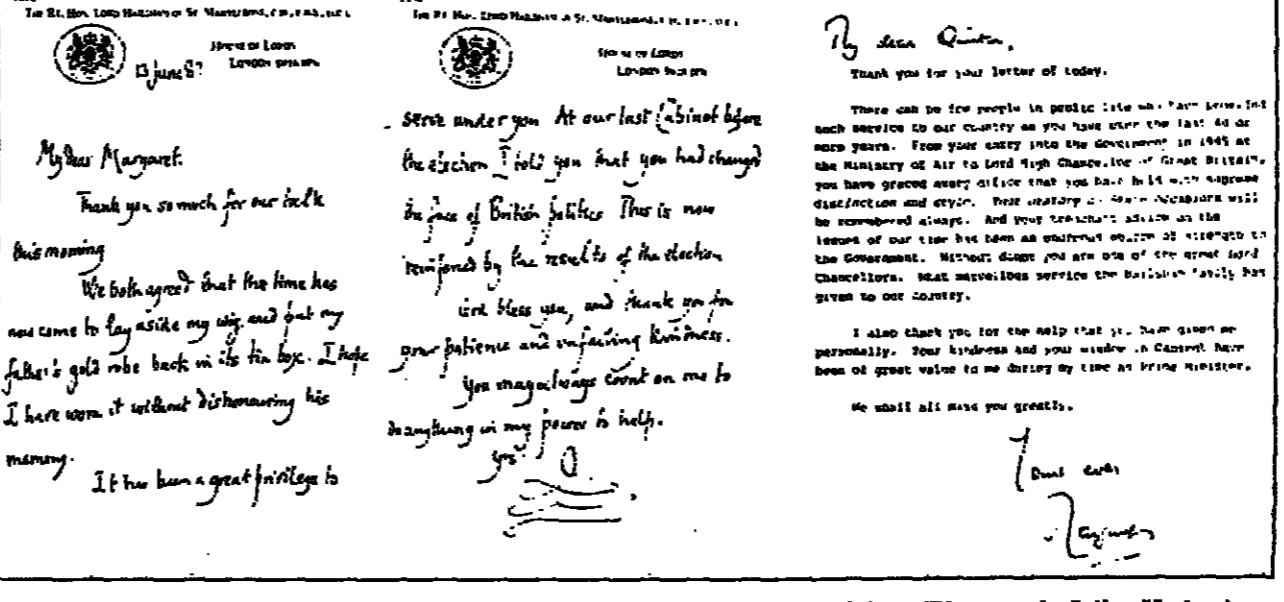 The Rt. Hon. Lord Hailsham of St. Marylebone,
House of Lords
London
13 June 87
My dear Margaret.
Thank you so much for our talk
this morning
We both agreed that the time has
now come to lay aside my wig and put my
father's gold robe back in its tin box. I hope
I have worn it without dishonouring his
memory.
It has been a great privilege to
The Rt. Hon. Lord Hailsham of St. Marylebone,
House of Lords
London
serve under you At our last Cabinet before
the election I told you that you had changed
the face of British politics This is now
reinforced by the results of the election
God bless you, and thank you for
your patience and unfailing kindness.
You may always count on me to
do anything in my power to help.
Yrs
Q
My dear Quintin,
Thank you for your letter of today.
There can be few people in public life who have
such service to our country as you have over the last 40 or
more years. From your entry into the Government in 1945 at
the Ministry of Air to Lord High Chancellor of Great Britain,
you have graced every office that you have held with supreme
distinction and style. Your oratory on occasions will
be remembered always. And your trenchant advice on the
issues of our time has been an source of strength to
the Government. Without doubt you are one of the great Lord
Chancellors. What marvellous service the Hailsham family has
given to our country.
I also thank you for the help that you have given me
personally. Your kindness and your wisdom in Cabinet have
been of great value to me during my time as Prime Minister.
We shall all miss you greatly.
Yours ever
Margaret